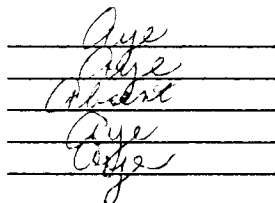 Aye
Aye
Absent
Aye
Aye